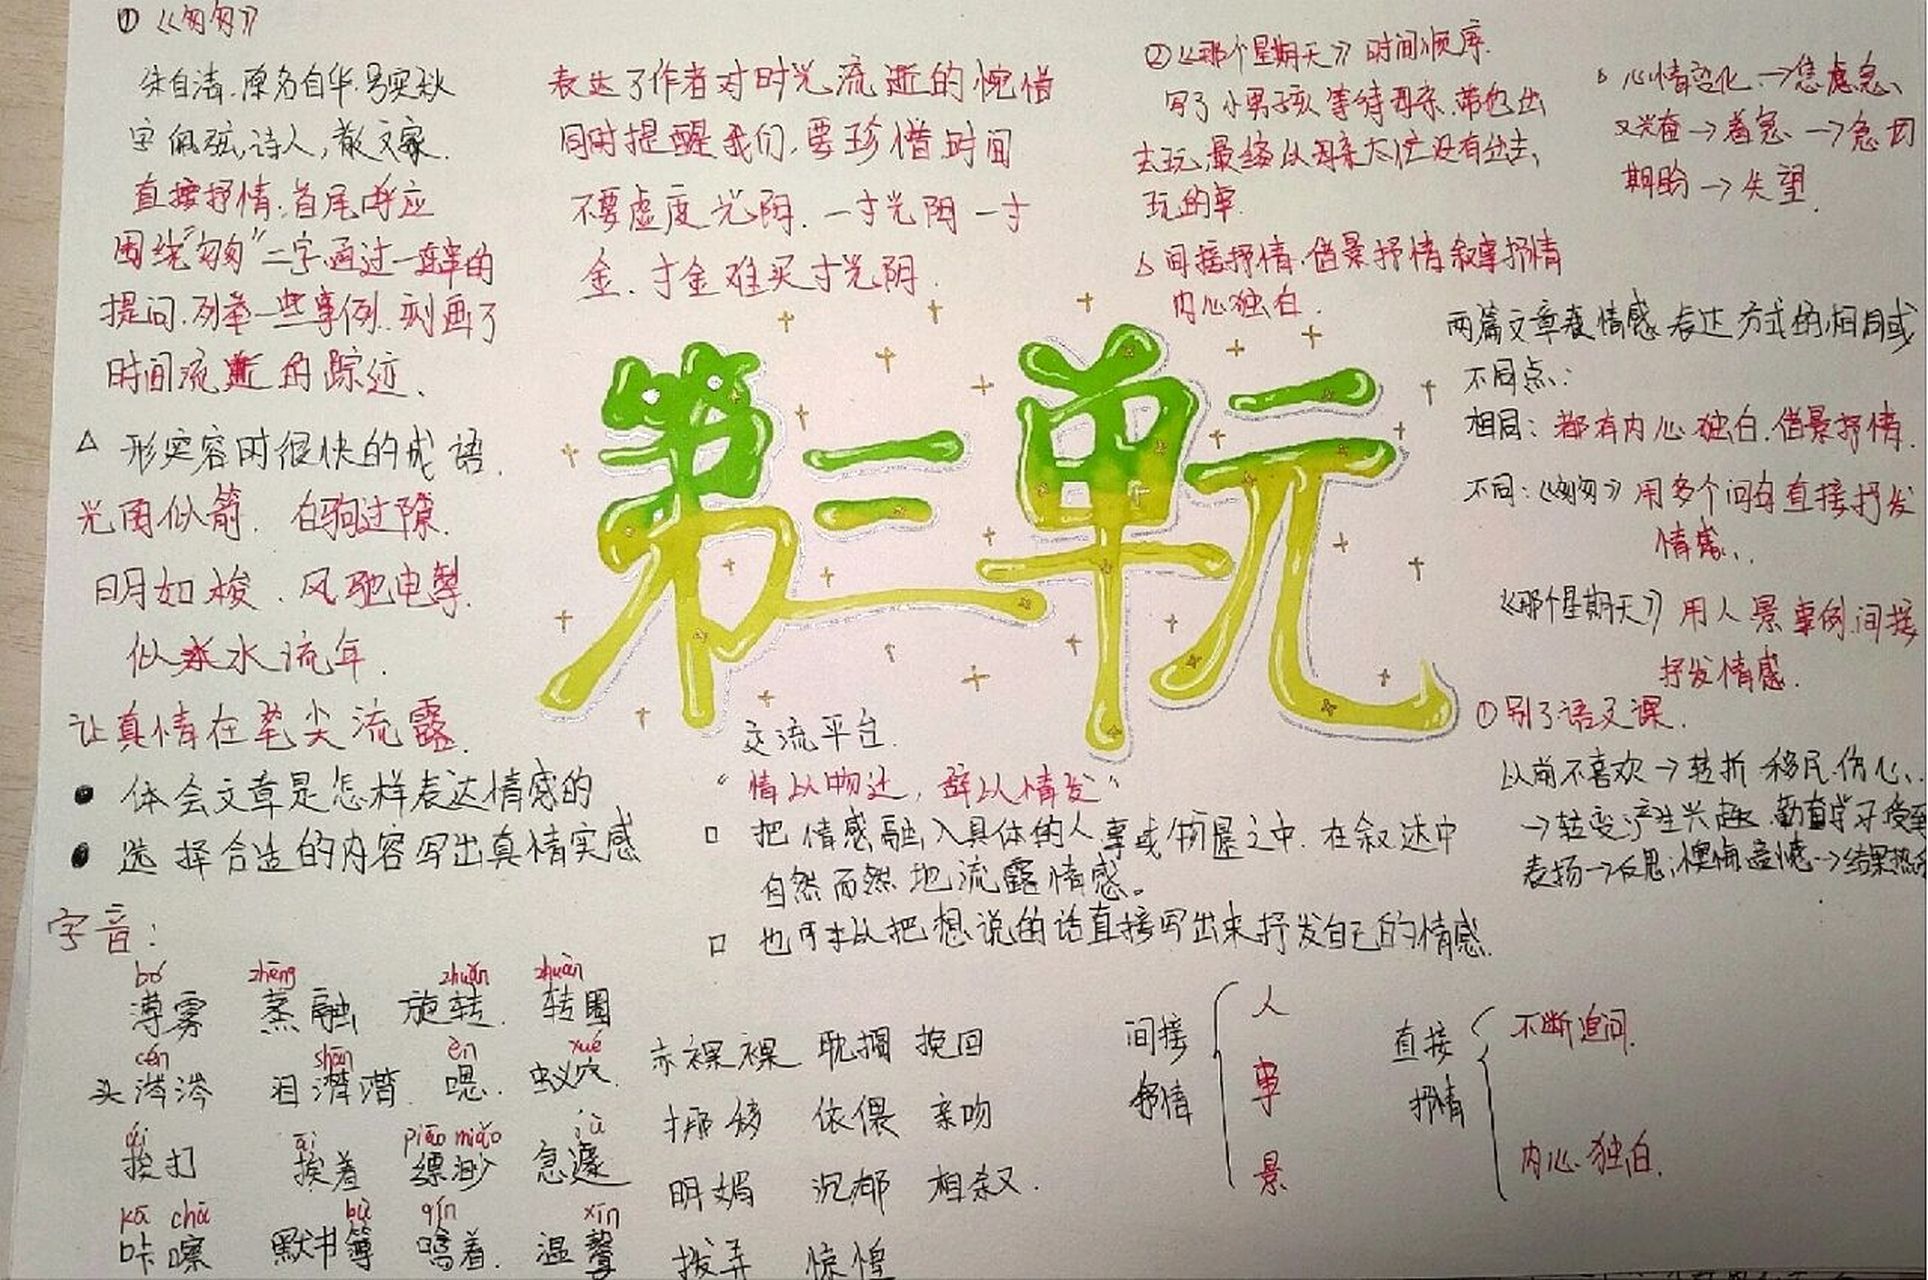 ①《匆匆》
朱自清.原名自华.号实秋
字佩弦,诗人,散文家.
直接抒情.首尾呼应
围绕"匆匆"二字,通过一连串的
提问.列举一些事例.刻画了
时间流逝的踪迹.
表达了作者对时光流逝的惋惜
同时提醒我们,要珍惜时间
不要虚度光阴.一寸光阴一寸
金.寸金难买寸光阴.
②《那个星期天》时间顺序.
写了小男孩等待母亲.带他出
去玩,最终以母亲太忙没有出去,
玩的事.
△间接抒情.借景抒情叙事抒情
内心独白.
心情变化.→焦虑急、
又兴奋→着急→急切
期盼→失望.
两篇文章表情感表达方式的相同或
不同点:
相同:都有内心独白.借景抒情.
不同:《匆匆》用多个问句直接抒发
情感.
《那个星期天》用人景事例间接
抒发情感.
△形容时很快的成语.
光阴似箭.白驹过隙.
日月如梭.风驰电掣.
似水流年.
第三单元
让真情在笔尖流露.
●体会文章是怎样表达情感的
●选择合适的内容写出真情实感
交流平台.
"情以物迁,辞以情发"
□把情感融入具体的人事或物景之中.在叙述中
自然而然地流露情感。
□也可以把想说的话直接写出来抒发自己的情感.
①别了语文课.
以前不喜欢→转折 移民.伤心.
→转变:产生兴趣.勤奋学习受到
表扬→反思:懊悔遗憾→结果热
字音:
bó zhēng zhuǎn zhuàn
薄雾 蒸融 旋转. 转圈
cén shān èn xué
头涔涔 泪潸潸 嗯. 蚁穴.
ái āi piāo miǎo jù
挨打 挨着 缥缈 急遽
kā chā bù qín xīn
咔嚓 默书簿 噙着. 温馨
赤裸裸 耽搁 挽回
挪移 依偎 亲吻
明媚 沉郁 相叙.
拨弄 惊惶
间接抒情
人
事
景
直接抒情
不断追问.
内心独白.